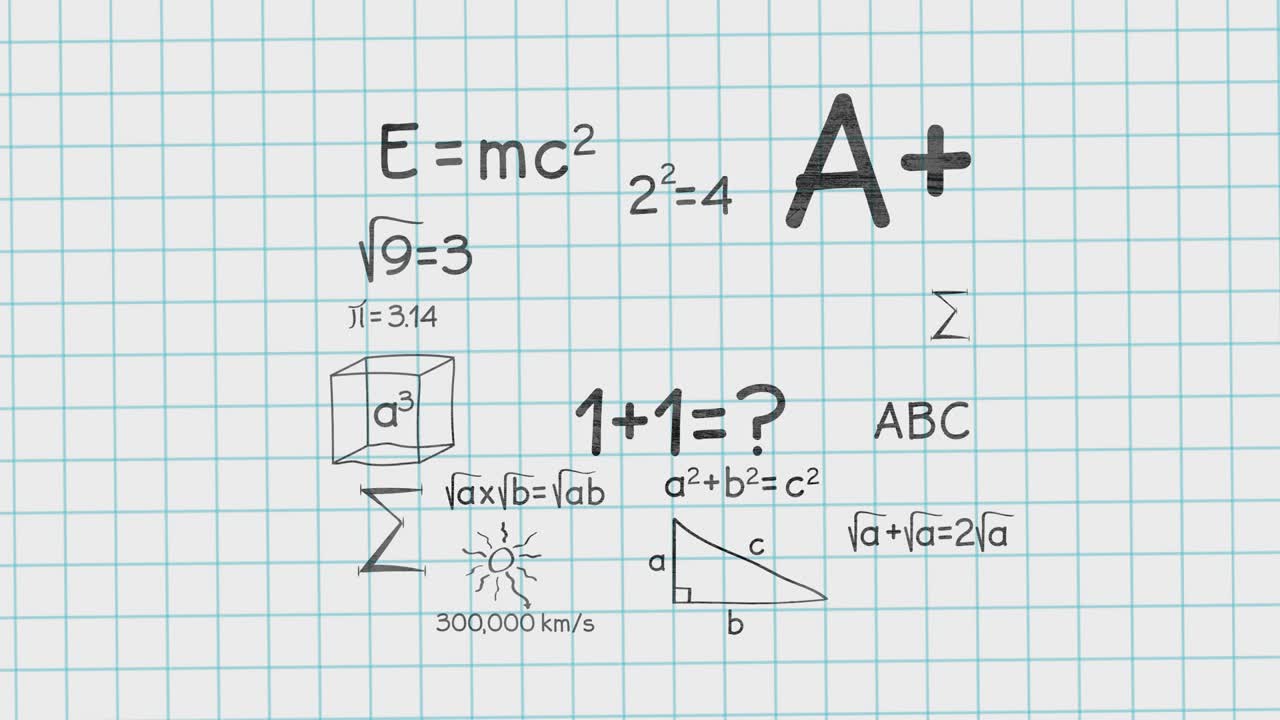 E = mc²
2²=4
A+
√9=3
π = 3.14
Σ
a³
1+1=?
ABC
√a x √b = √ab
a²+b²= c²
Σ
√a+√a=2√a
a
c
300,000 km/s
b